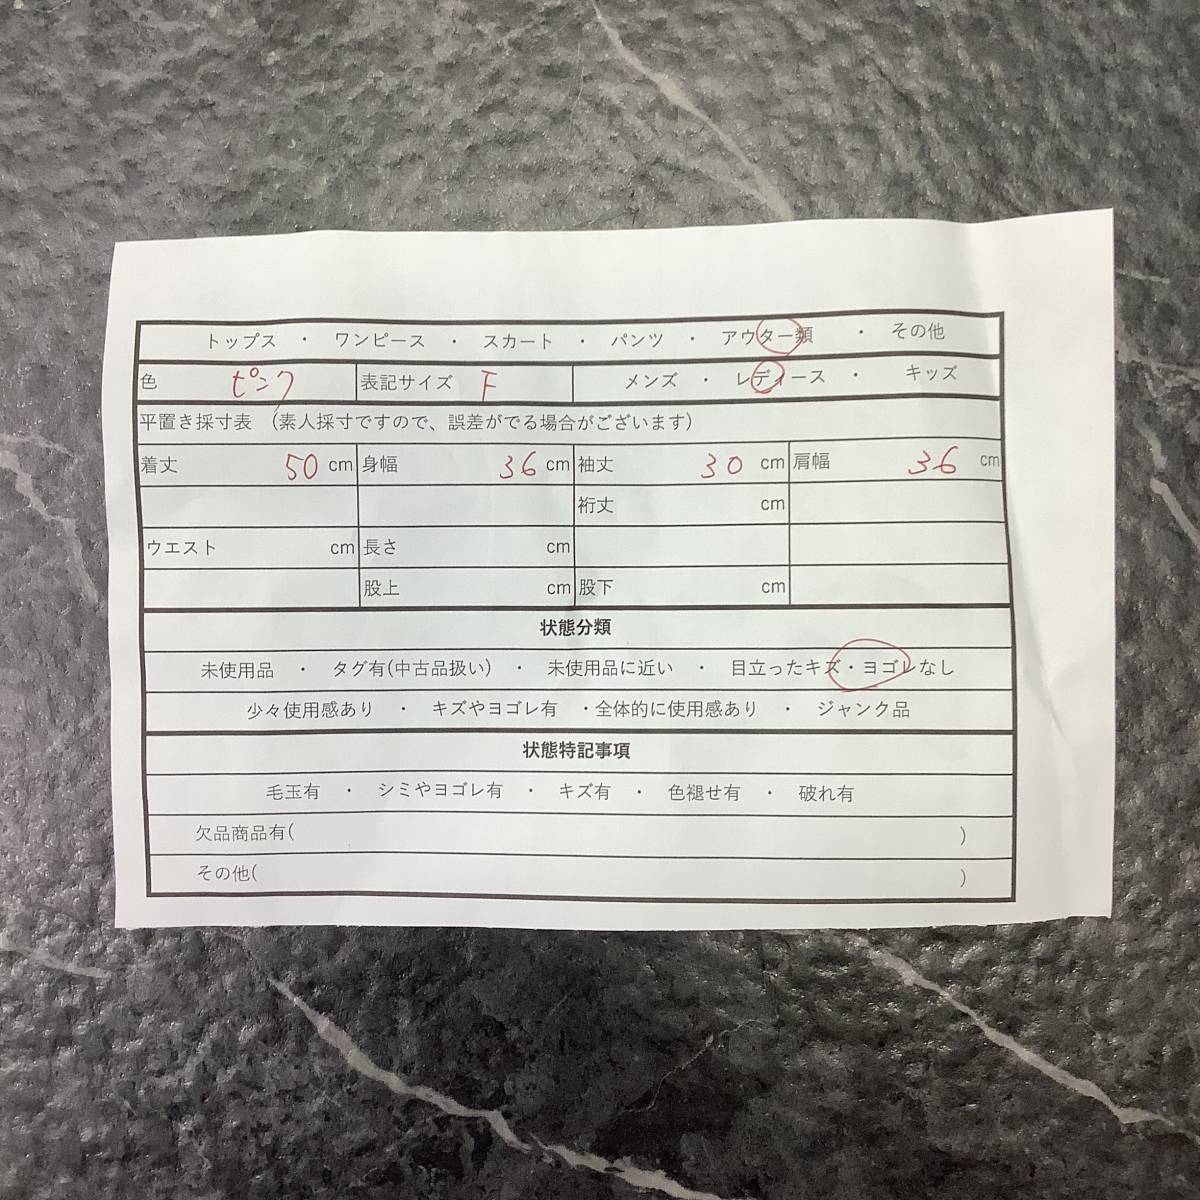 トップス ・ ワンピース ・ スカート ・ パンツ ・ アウター類 ・ その他
色 ピンク 表記サイズ F メンズ ・ レディース ・ キッズ
平置き採寸表 (素人採寸ですので、誤差がでる場合がございます)
着丈 50 cm 身幅 36 cm 袖丈 30 cm 肩幅 36 cm
裄丈 cm
ウエスト cm 長さ cm
股上 cm 股下 cm
状態分類
未使用品 ・ タグ有(中古品扱い) ・ 未使用品に近い ・ 目立ったキズ・ヨゴレなし
少々使用感あり ・ キズやヨゴレ有 ・全体的に使用感あり ・ ジャンク品
状態特記事項
毛玉有 ・ シミやヨゴレ有 ・ キズ有 ・ 色褪せ有 ・ 破れ有
欠品商品有( )
その他( )